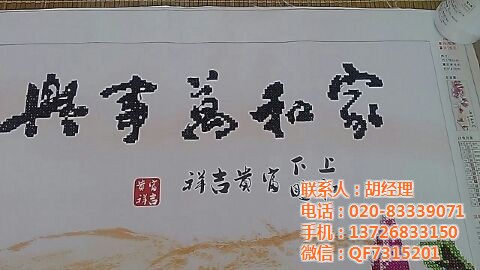 家和萬事興
上
下
富貴吉祥
富吉
貴祥
联系人：胡经理
电话：020-83339071
手机：13726833150
微信：QF7315201